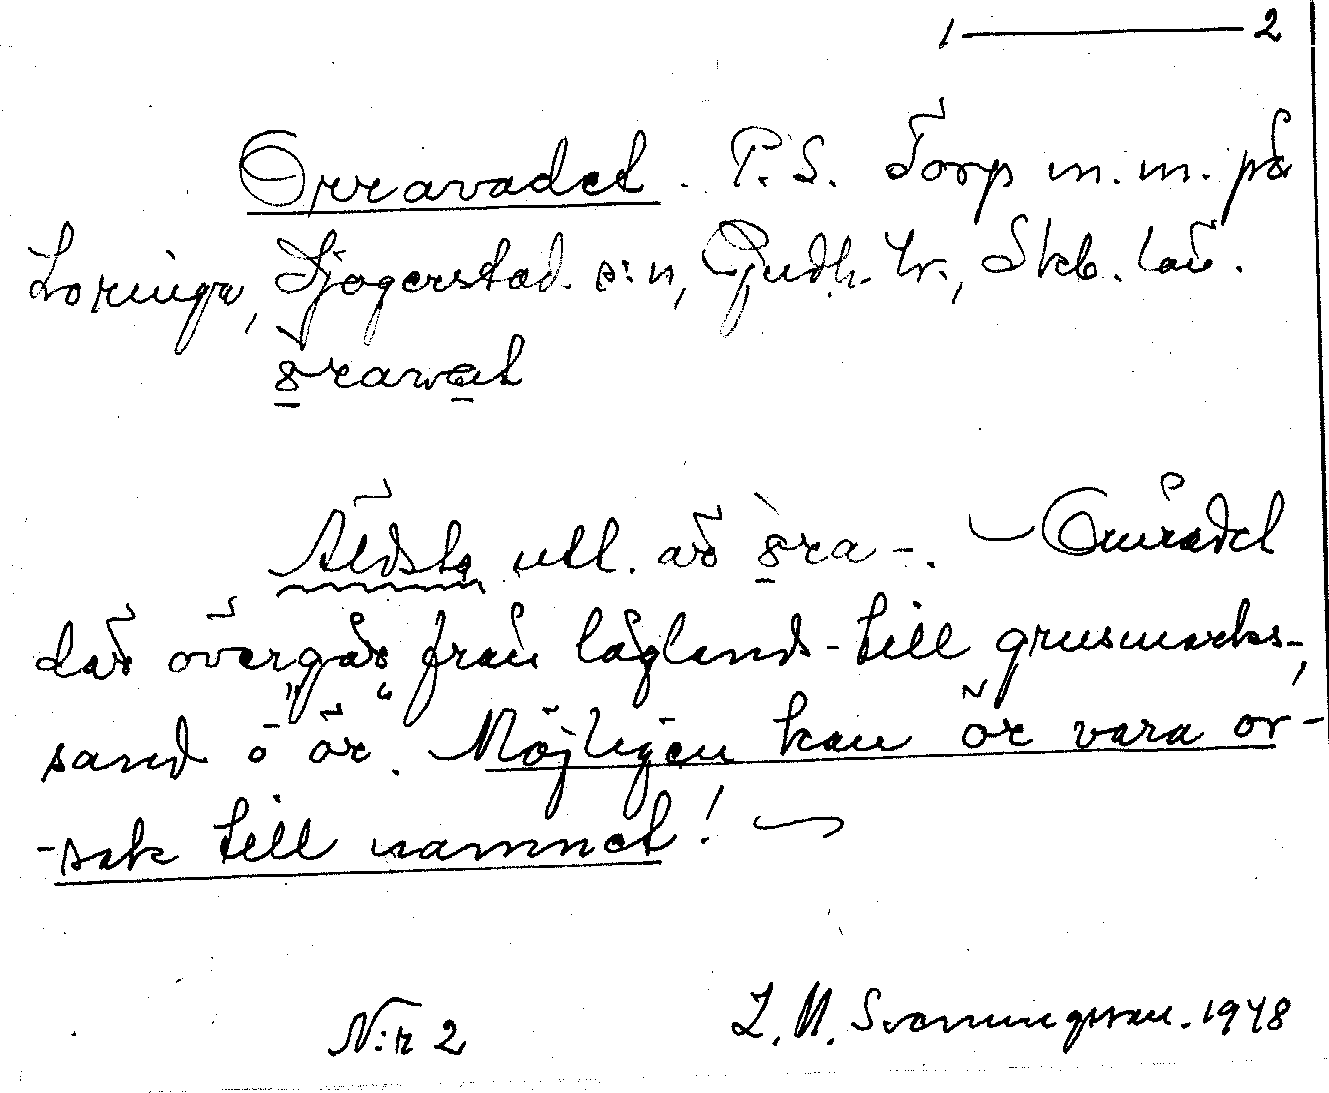 1 — 2
Orravadet. P.S. Torp m.m. på
Loringa, Sjogerstad. s:n, Gudh. hr., Skb. län.
Äldsta utt. är ɞ̱ra-. — Området
där övergår från låglands- till grusmarks-,
sand ö "ör". Möjligen kan ör vara or-
-sak till namnet! —
N:r 2
L. M. Svenningsson. 1948